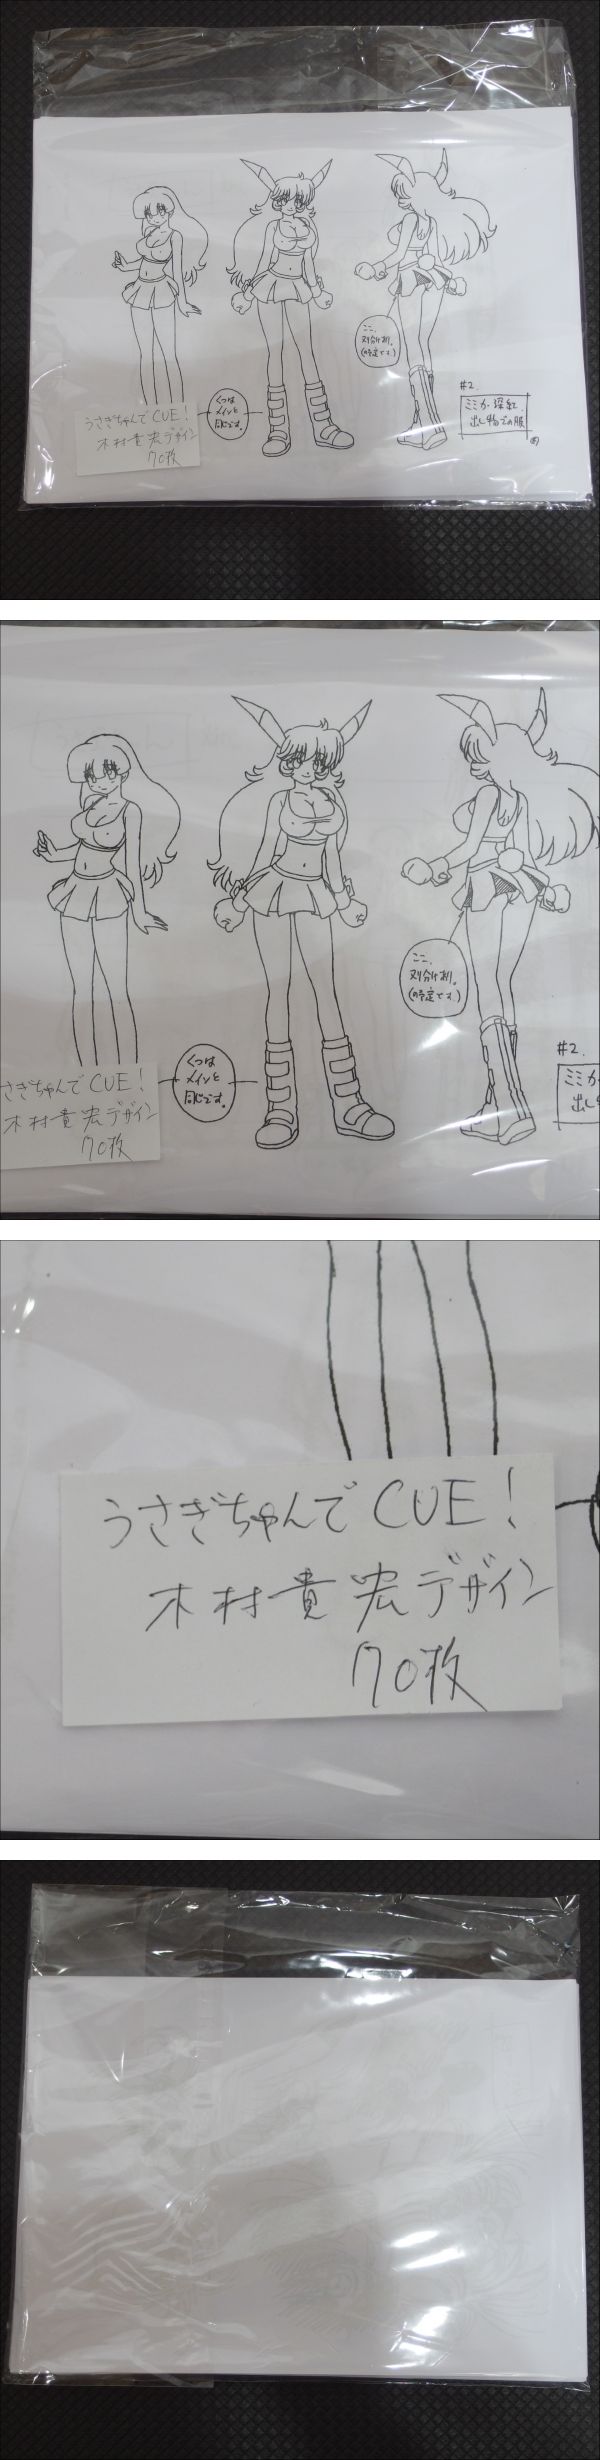 うさぎちゃんでCUE!
木村貴宏デザイン
70枚
くつは
メインと
同じです。
ここ、
ヌリ分けあり。
(の予定です。)
#2.
ミミカ・深紅
出し物での服
うさぎちゃんでCUE!
木村貴宏デザイン
70枚
くつは
メインと
同じです。
ここ、
ヌリ分けあり。
(の予定です。)
#2.
ミミカ
出し物
うさぎちゃんでCUE!
木村貴宏デザイン
70枚